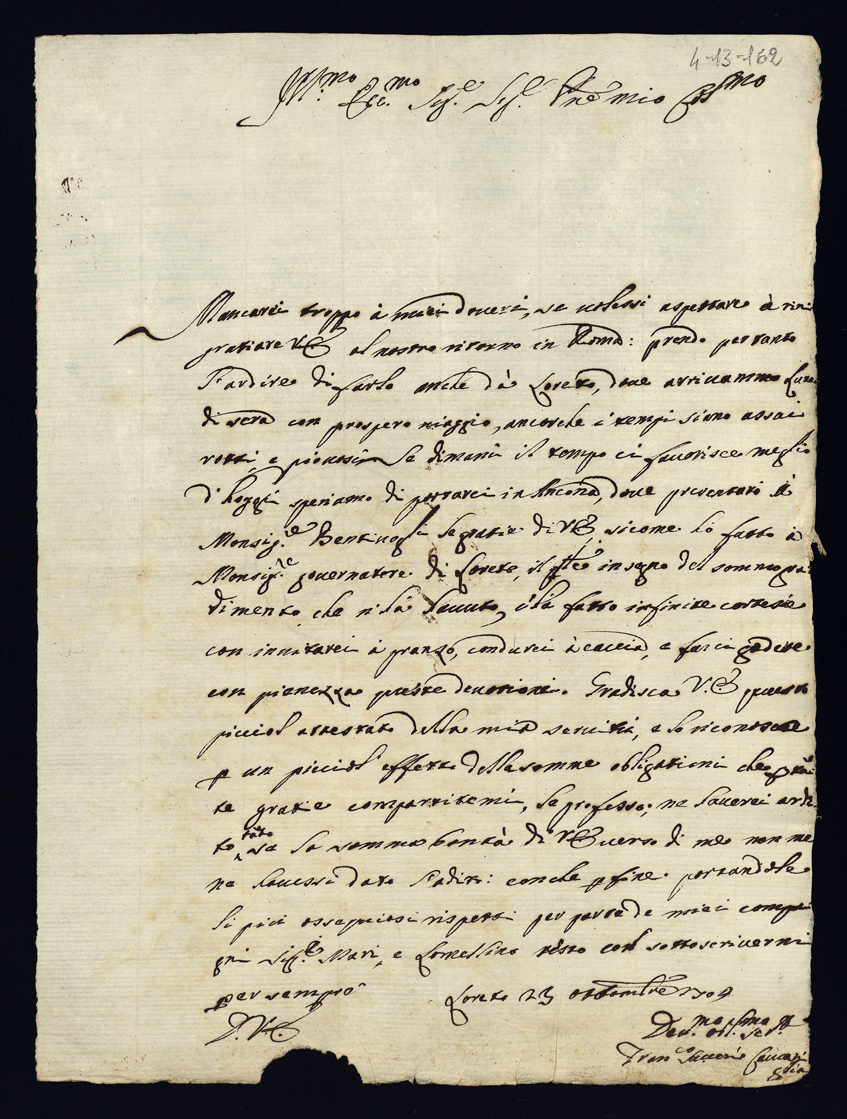 4-13-162
Ill.mo Ecc.mo Sig.e Sig.e Pne mio Col.mo
Mancarei troppo à miei doveri, se volessi aspettare à rin
gratiare VE al nostro ritorno in Roma: prendo per tanto
l'ardire di farlo anche dà Loreto, dove arrivammo Lune
di sera con prospero viaggio, ancorche i tempi siano assai
rotti, e piovosi. Se dimani il tempo ci favorisce meglio
d'hoggi speriamo di portarci in Ancona, dove presentarò à
Monsig.e Bentivogli le gratie di VE, sicome hò fatto à
Monsig.re governatore di Loreto, il in segno del sommo gra
dimento, che n'hà havuto, ci hà fatto infinite cortesie
con invitarci à pranzo, condurci à caccia, e farci godere
con pienezza queste devotioni. Gradisca V.E questo
picciol attestato della mia servitù, e lo riconosca
p un picciol' effetto delle somme obligationi che
te gratie compartitemi, le professo; ne haverei ardi
to tãto se la somma bontà di VE verso di me non me
ne havesse dato l'adito: con che p fine portandole
li più ossequiosi rispetti per parte de miei compa
gni Sig.ri Mari, e Lomellino resto col sottoscrivermi
per sempre
Loreto 23 ottombre 1704
D. VE
Dev.mo Obl.mo Ser.re
Fran.co